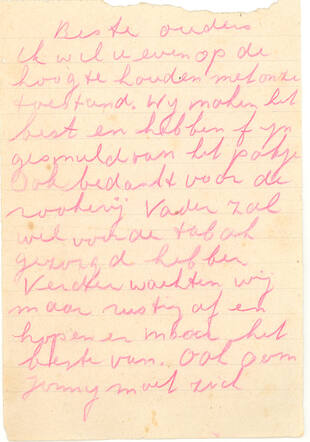 Beste ouders
Ik wil u even op de
hoogte houden met onze
toestand. Wij maken het
best en hebben fijn
gesmuld van het pakje
Ook bedankt voor de
rookerij Vader zal
wel voor de tabak
gezorgd hebben
Verder wachten wij
maar rustig af en
hopen er maar het
beste van. Ook oom
Jonny moet zich